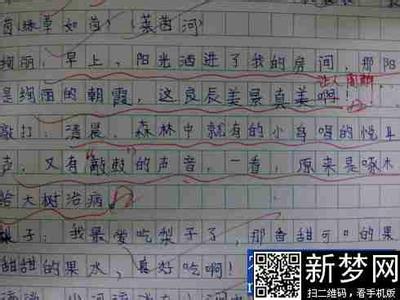 茵绿草如茵 (莱茵河)
绚丽:早上,阳光洒进了我的房间,那阳
是绚丽的朝霞,这良辰美景真美啊!
敲打:清晨,森林中就有的小鸟唱的悦耳
声,又有"敲敲"的声音,一看,原来是啄木
给大树治病
梨子:我最爱吃梨子了,那香甜可口的果
甜甜的果水,真好吃啊!
新梦网
扫二维码,看手机版